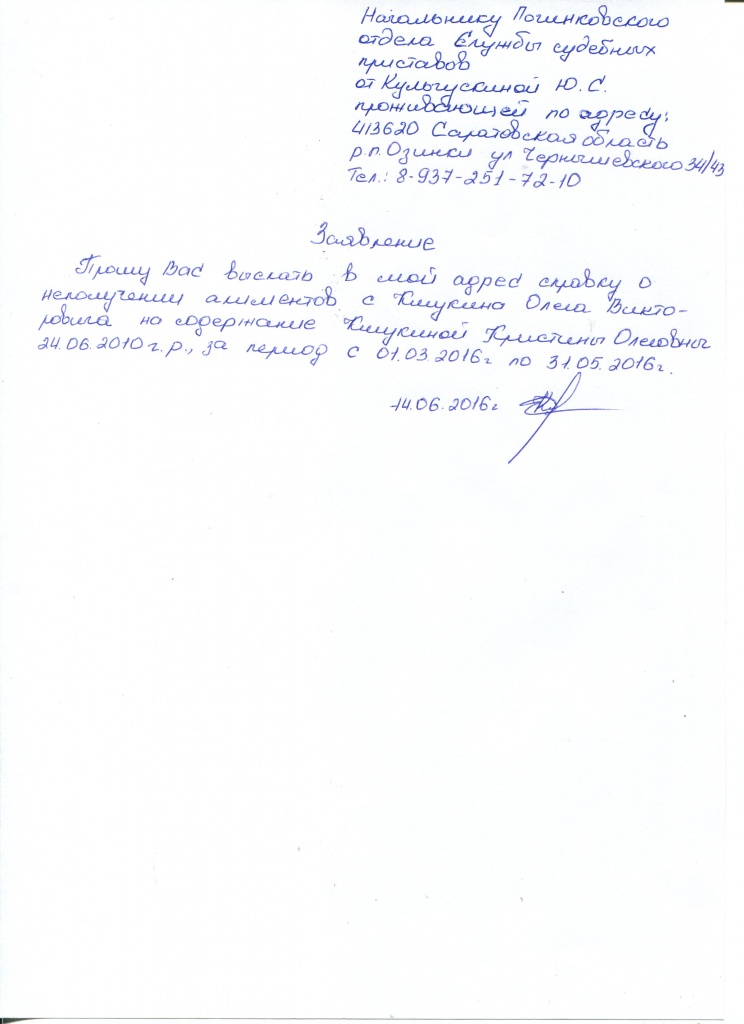 Начальнику Починковского
отдела Службы судебных
приставов
от Кульгускиной Ю.С.
проживающей по адресу:
413620 Саратовская область
р.п. Озинки ул Чернышевского 34/43
Тел.: 8-937-251-72-10
Заявление
Прошу Вас выслать в мой адрес справку о
неполучении алиментов с Клукина Олега Викто-
ровича на содержание Клукиной Кристины Олеговны
24.06.2010 г.р., за период с 01.03.2016г по 31.05.2016г.
14.06.2016г